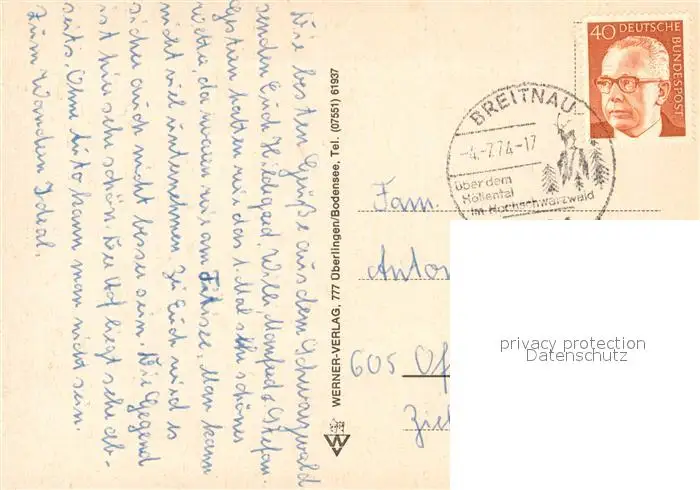 Die besten Grüße aus dem Schwarzwald
senden Euch Hildegard, Willi, Manfred & Stefan.
Gestern hatten wir das 1. Mal sehr schönes
Wetter, da waren wir am Titisee. Man kann
nicht viel unternehmen. Bei Euch wird es
sicher auch nicht besser sein. Die Gegend
ist hier sehr schön. Der Hof liegt sehr ab-
seits. Ohne Auto kann man nicht sein.
Zum Wandern Ideal.
WERNER-VERLAG, 777 Überlingen/Bodensee, Tel. (07551) 61937
W
40 DEUTSCHE
BUNDESPOST
BREITNAU
-4.-7.74-17
über dem
Höllental
im Hochschwarzwald
Fam.
Anton
605 Of
Ziel
privacy protection
Datenschutz